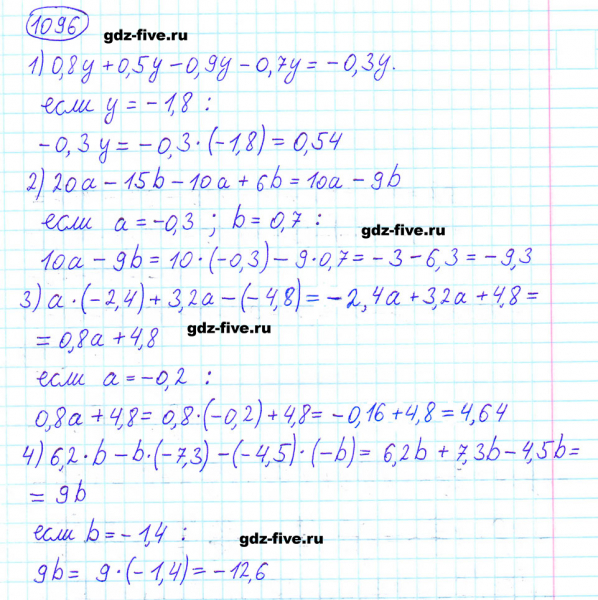 1096
gdz-five.ru
1) 0,8y + 0,5y - 0,9y - 0,7y = - 0,3y.
если y = - 1,8 :
- 0,3y = - 0,3 · (- 1,8) = 0,54
2) 20a - 15b - 10a + 6b = 10a - 9b
если a = -0,3 ; b = 0,7 :
gdz-five.ru
10a - 9b = 10 · (-0,3) - 9 · 0,7 = - 3 - 6,3 = - 9,3
3) a · (- 2,4) + 3,2a - (- 4,8) = - 2,4a + 3,2a + 4,8 =
gdz-five.ru
= 0,8a + 4,8
если a = -0,2 :
0,8a + 4,8 = 0,8 · (-0,2) + 4,8 = -0,16 + 4,8 = 4,64
4) 6,2 · b - b · (- 7,3) - (- 4,5) · (- b) = 6,2b + 7,3b - 4,5b =
= 9b
если b = - 1,4 :
gdz-five.ru
9b = 9 · (- 1,4) = - 12,6